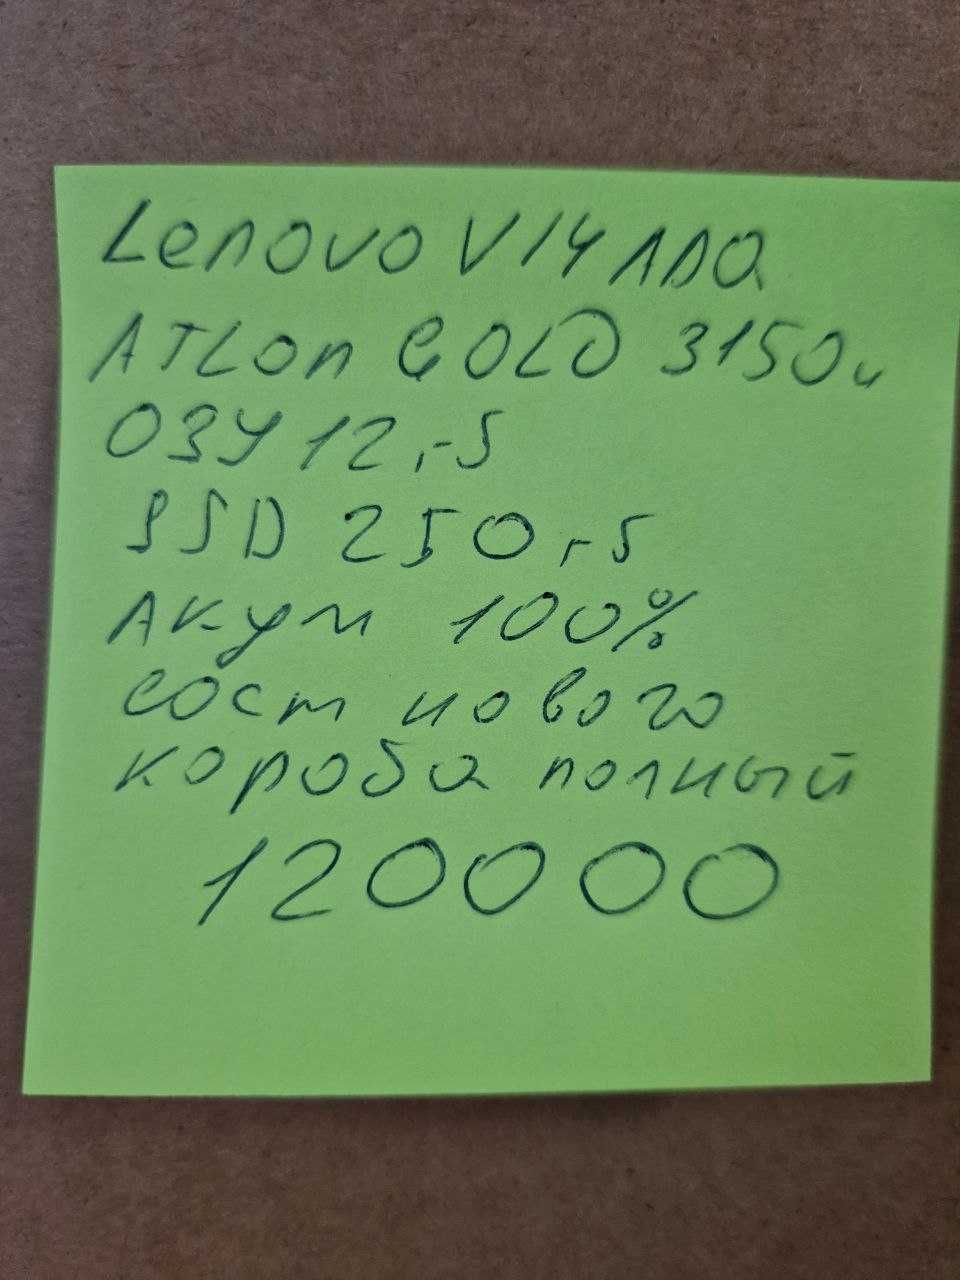 Lenovo V14 ADA
ATLon GOLD 3150u
ОЗУ 12 гб
SSD 250 гб
Акум 100%
сост нового
короба полный
120000